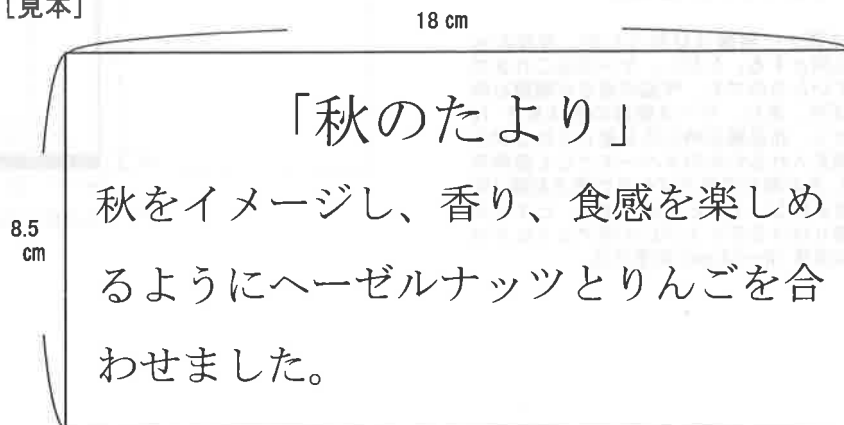 ［見本］
18 cm
「秋のたより」
秋をイメージし、香り、食感を楽しめ
8.5
cm
るようにヘーゼルナッツとりんごを合
わせました。